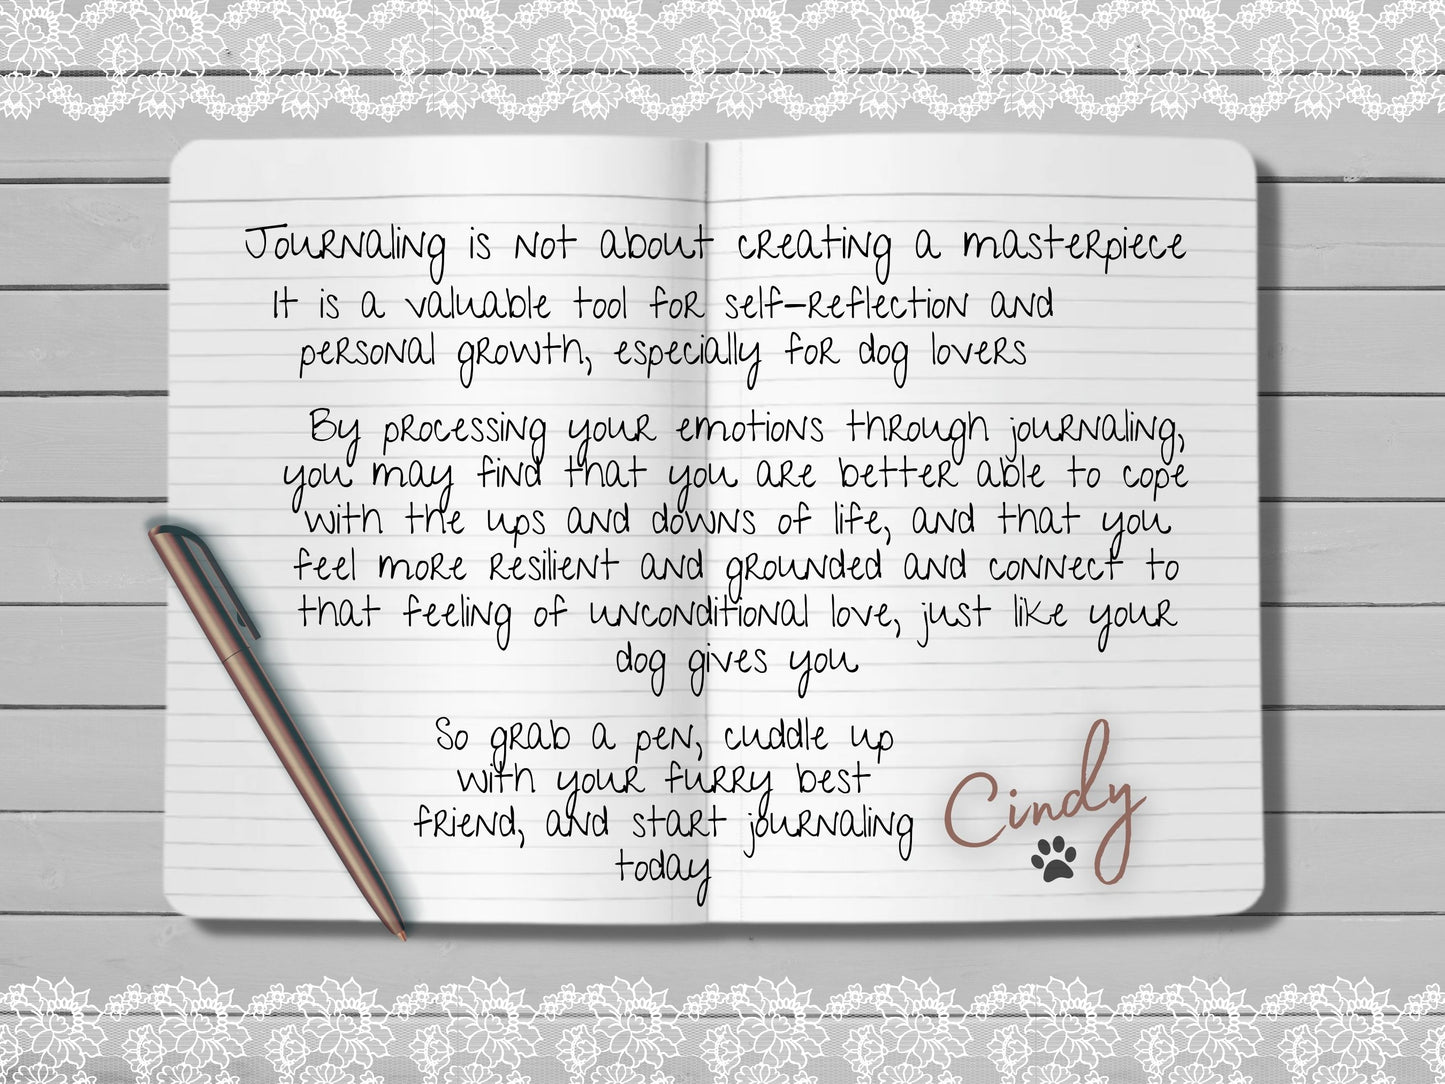 Journaling is not about creating a masterpiece
It is a valuable tool for self-reflection and
personal growth, especially for dog lovers
By processing your emotions through journaling,
you may find that you are better able to cope
with the ups and downs of life, and that you
feel more resilient and grounded and connect to
that feeling of unconditional love, just like your
dog gives you
So grab a pen, cuddle up
with your furry best
friend, and start journaling
today
Cindy